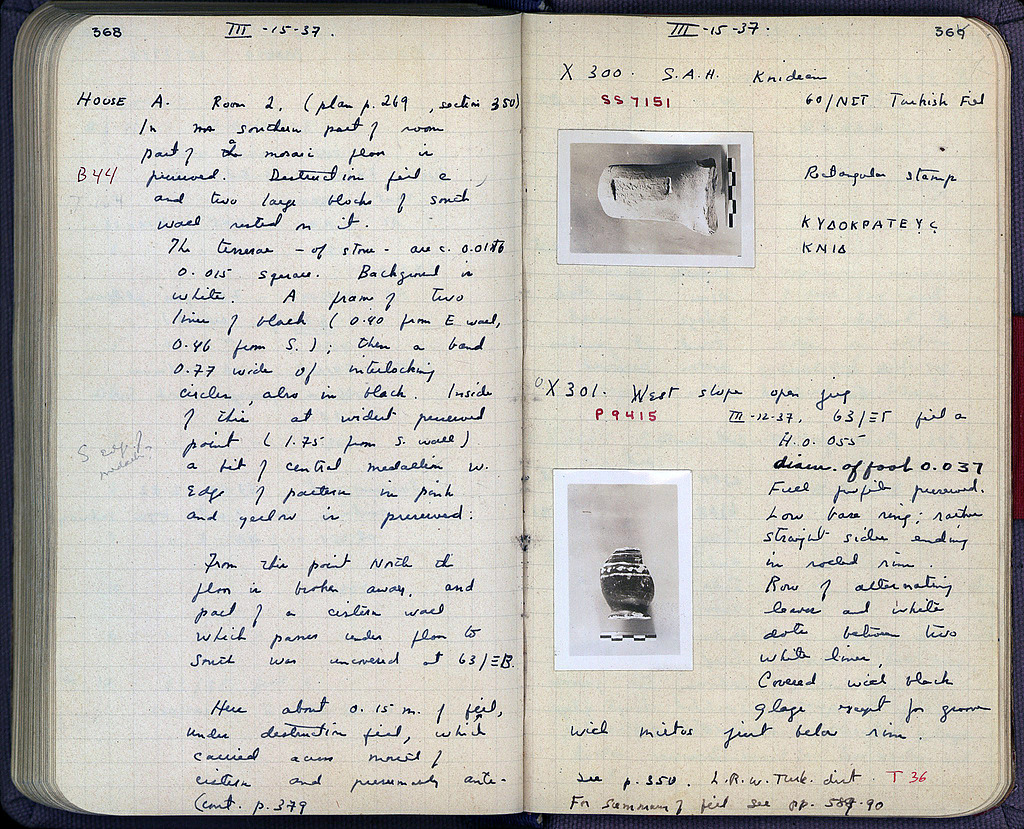 368
III -15-37.
HOUSE A. Room 2, (plan p. 269, section 350)
In southern part of room
part of a mosaic floor is
B44
preserved. Destruction fill
and two large blocks of south
wall rested on it.
The tesserae - of stone - are c. 0.01 to
0.015 square. Background is
white. A frame of two
lines of black (0.40 from E wall,
0.46 from S.); then a band
0.77 wide of interlocking
circles, also in black. Inside
of this at widest preserved
point (1.75 from S. wall)
S edge of
a bit of central medallion w.
edge of pattern in pink
and yellow is preserved.
From this point North the
floor is broken away, and
part of a cistern wall
which passes under floor to
South was uncovered at 63/ΞB.
Here about 0.15 m. of fill,
under destruction fill, which
carried across mouth of
cistern and presumably ante-
(cont. p. 379
III -15-37.
369
X 300. S.A.H. Knidean
SS 7151
60/NΣT Turkish Fill
Rectangular stamp
ΚΥΔΟΚΡΑΤΕΥϹ
ΚΝΙΔ
X 301. West slope open jug
P. 9415
III -12-37. 63/ΞΓ fill a
H. 0.055
diam. of foot 0.037
Full profile preserved.
Low base ring; rather
straight sides ending
in rim.
Row of alternating
leaves and white
dots between two
white lines.
Covered with black
glaze except for groove
with miltos just below rim.
See p. 350. L.R.W. Turk. dist. T 36
For summary of fill see pp. 589-90